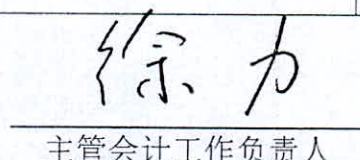 徐力
主管会计工作负责人